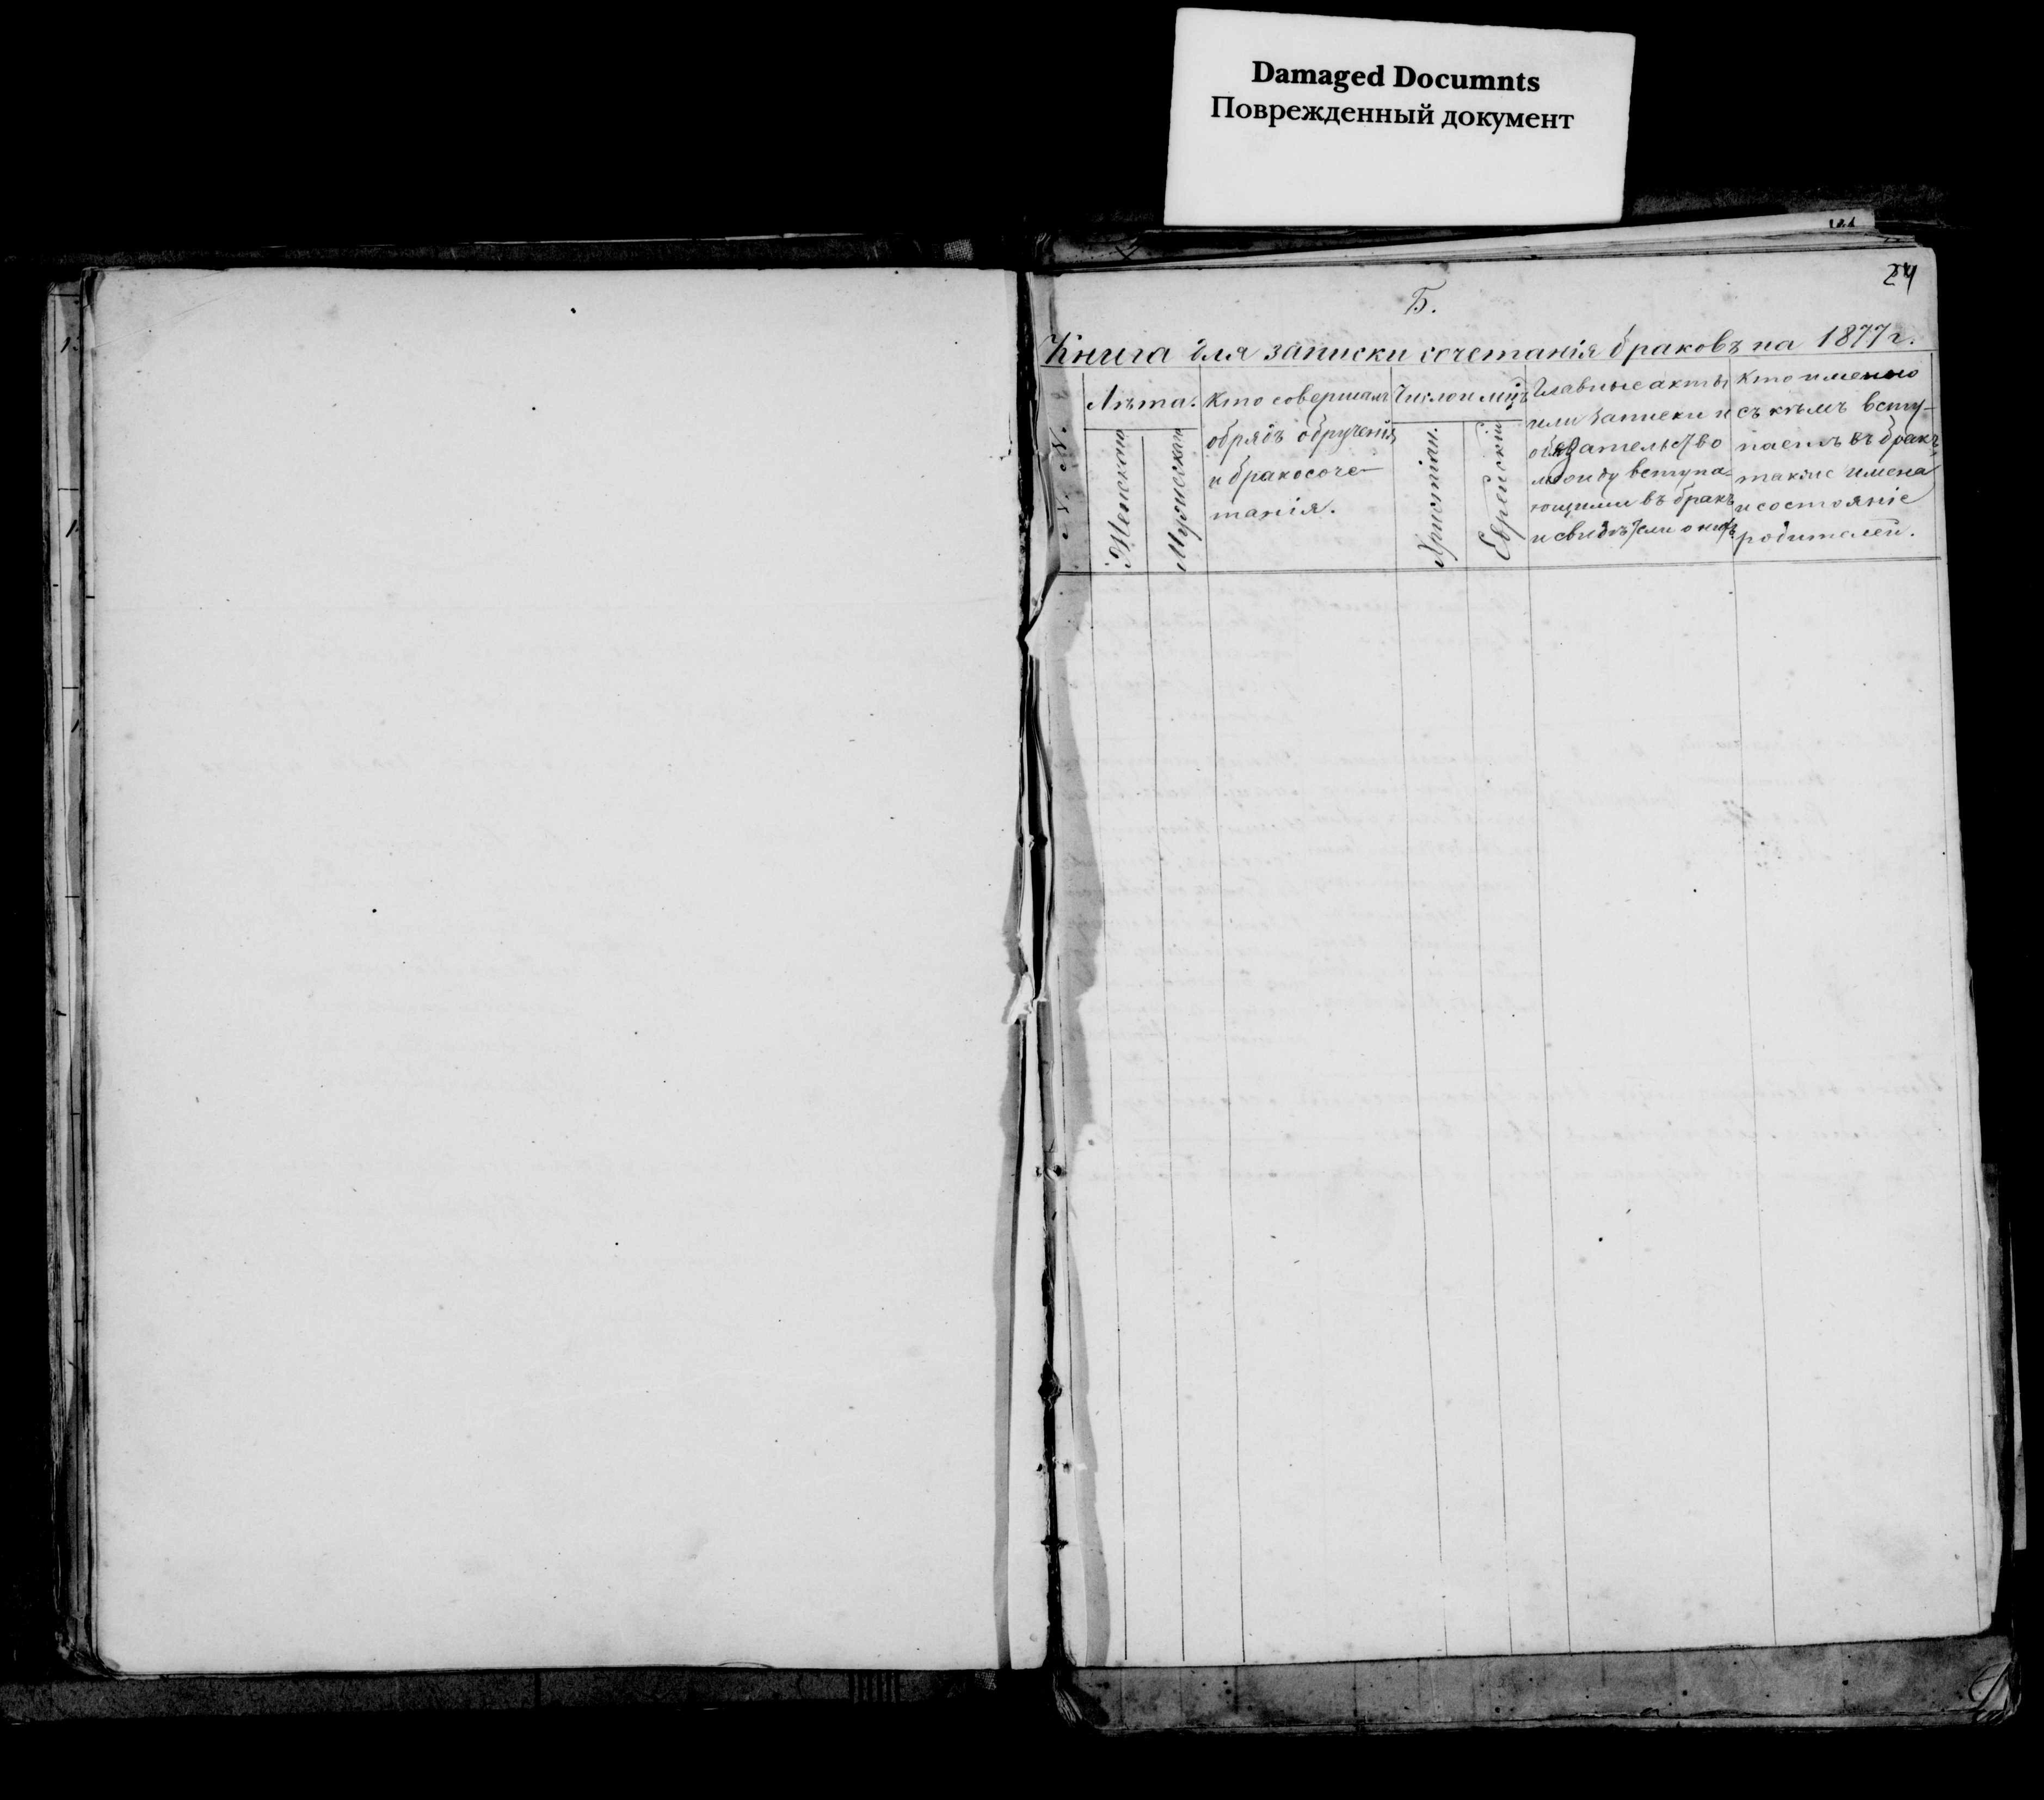 Damaged Documnts
Поврежденный документ
24
Б.
Книга для записки сочетанія браковъ на 1877 г.
№ №.
Лѣта.
Женская
Мужеская
Кто совершалъ
обрядъ обрученія
и бракосоче-
танія.
Число и мѣцъ
Христіан.
Еврейскій
Главные акты
или записки и
обязательство
между вступа-
ющими въ бракъ
и свидѣтели о нихъ
Кто именно
съ кѣмъ всту-
паетъ въ бракъ
также имена
и состояніе
родителей.